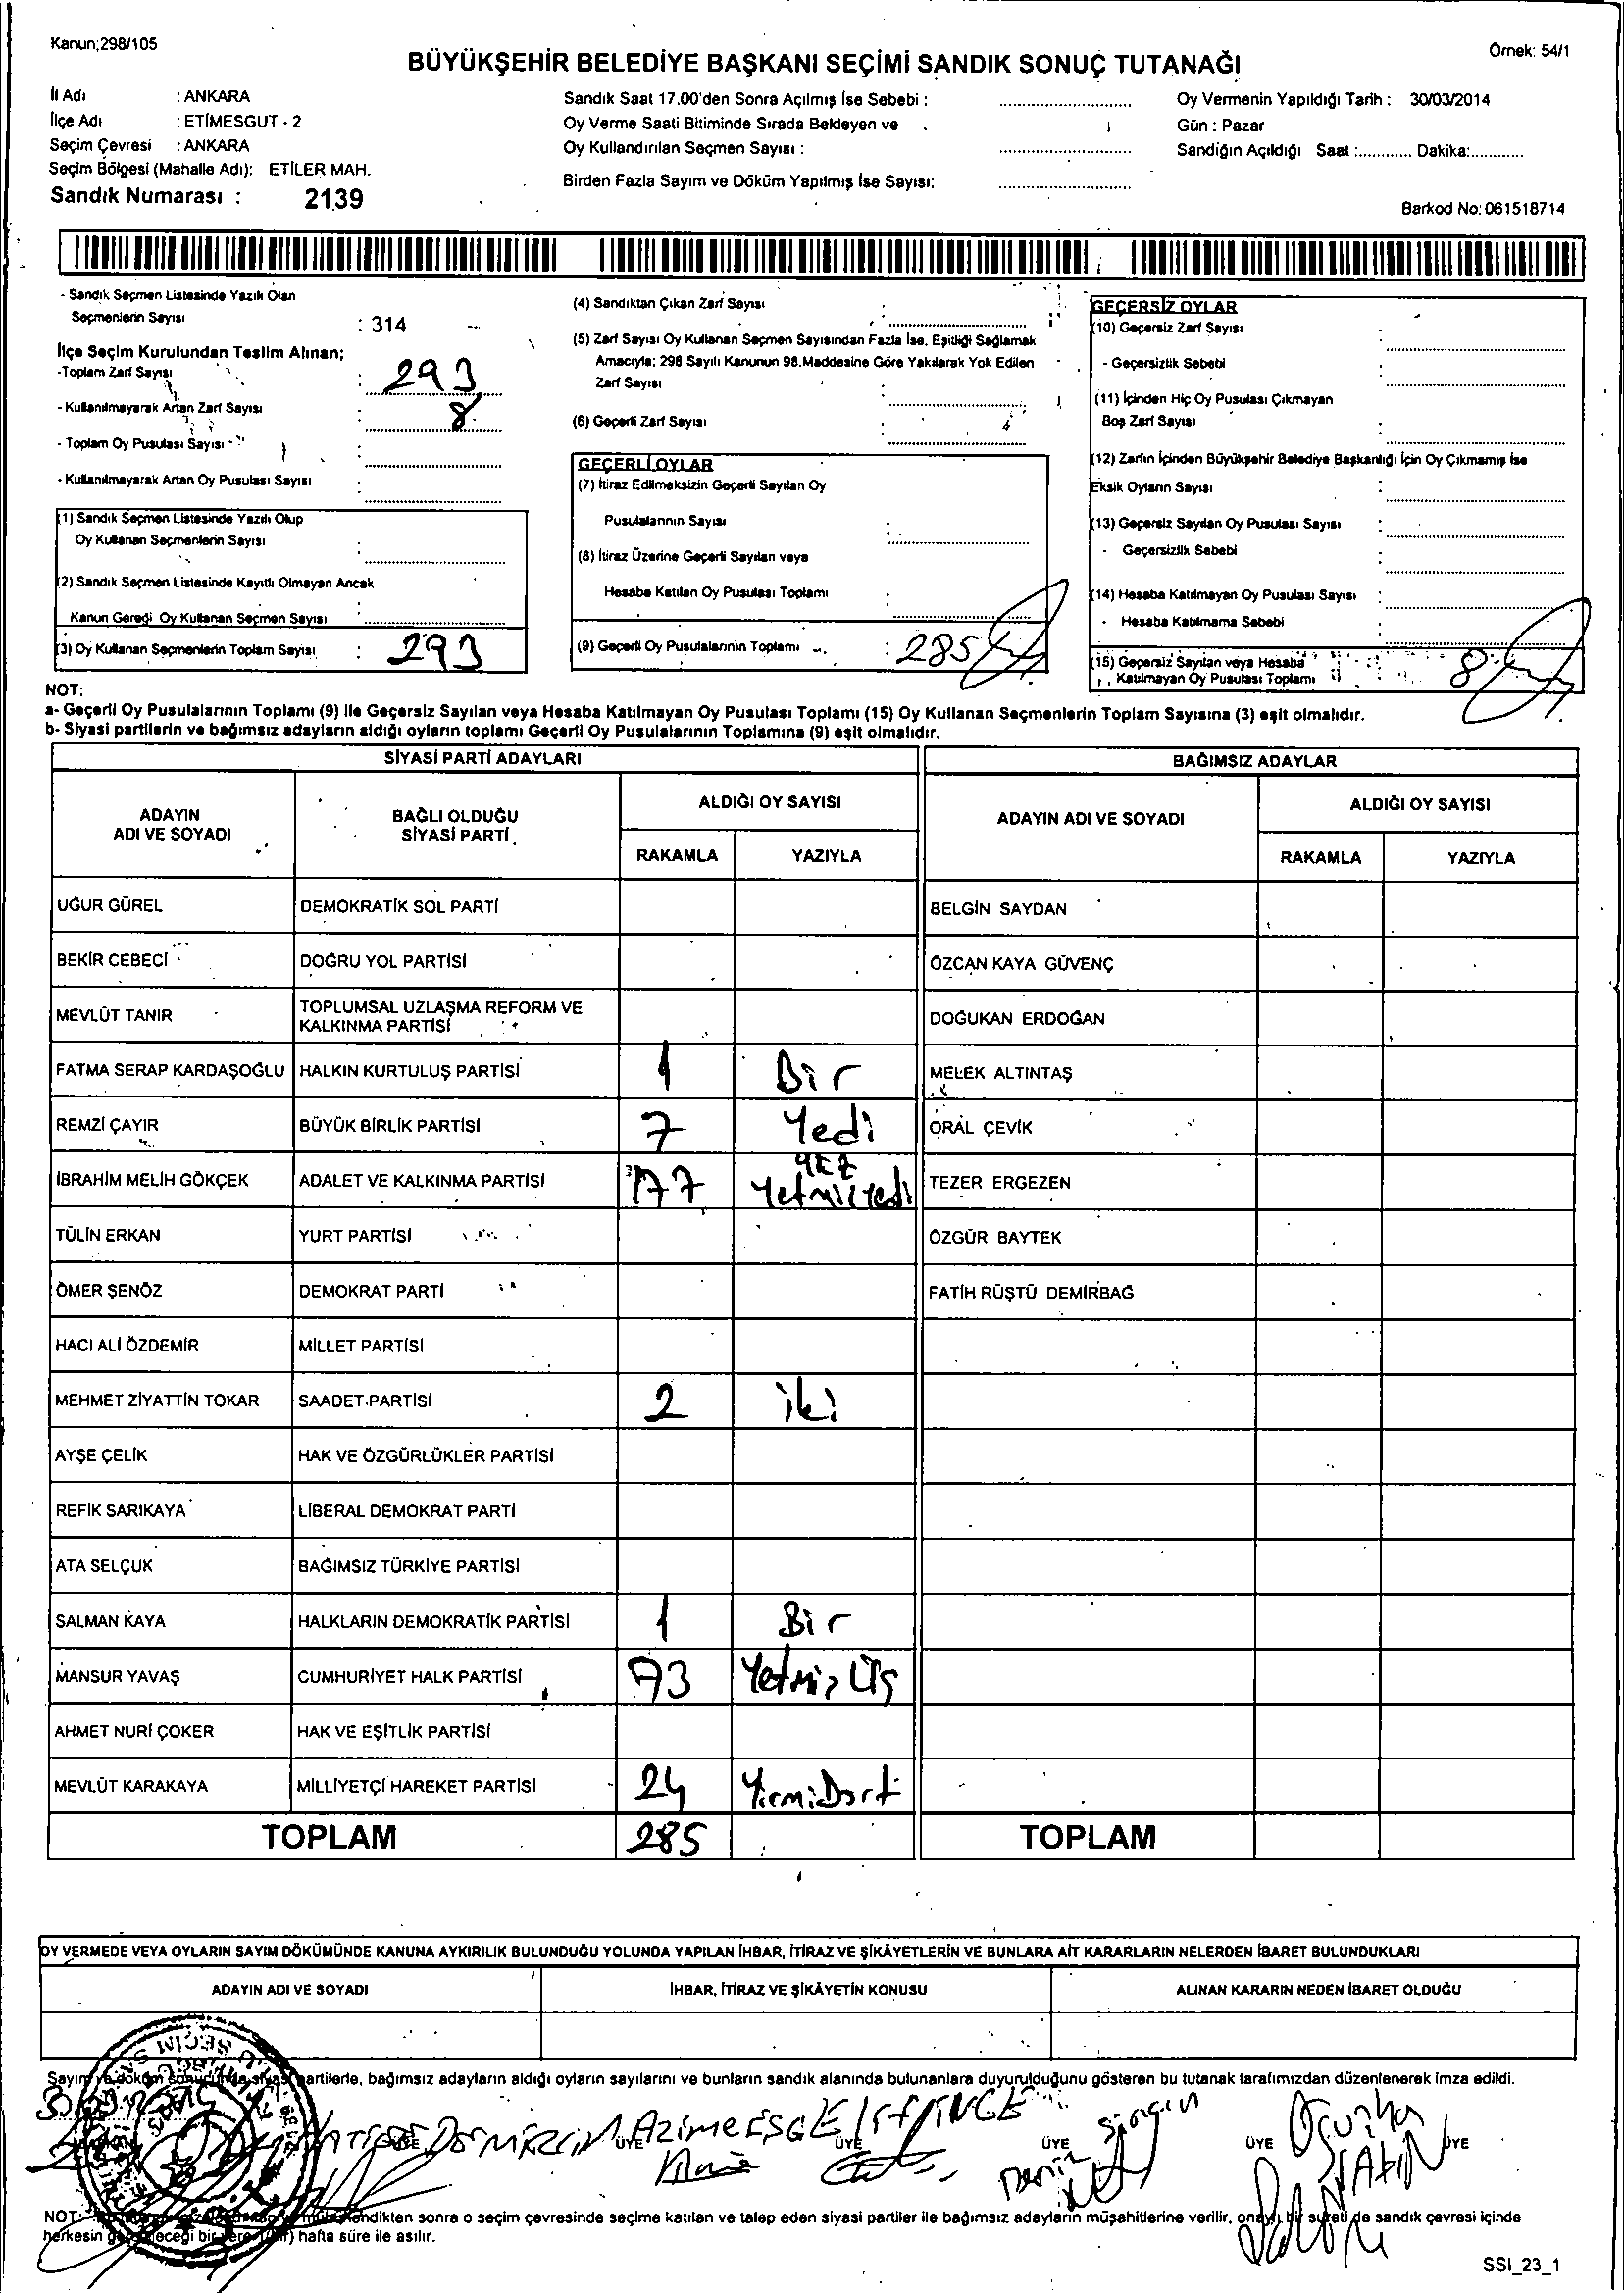 Kanun;298/105
Örnek: 54/1
BÜYÜKŞEHİR BELEDİYE BAŞKANI SEÇİMİ SANDIK SONUÇ TUTANAĞI
İl Adı : ANKARA
İlçe Adı : ETİMESGUT - 2
Seçim Çevresi : ANKARA
Seçim Bölgesi (Mahalle Adı): ETİLER MAH.
Sandık Numarası : 2139
Sandık Saat 17.00'den Sonra Açılmış İse Sebebi :
Oy Verme Saati Bitiminde Sırada Bekleyen ve
Oy Kullandırılan Seçmen Sayısı :
Birden Fazla Sayım ve Döküm Yapılmış İse Sayısı:
Oy Vermenin Yapıldığı Tarih : 30/03/2014
Gün : Pazar
Sandığın Açıldığı Saat :............ Dakika:............
Barkod No: 061518714
- Sandık Seçmen Listesinde Yazılı Olan
Seçmenlerin Sayısı : 314
İlçe Seçim Kurulundan Teslim Alınan;
-Toplam Zarf Sayısı : 293
- Kullanılmayarak Artan Zarf Sayısı : 8
- Toplam Oy Pusulası Sayısı :
- Kullanılmayarak Artan Oy Pusulası Sayısı :
(1) Sandık Seçmen Listesinde Yazılı Olup
Oy Kullanan Seçmenlerin Sayısı :
(2) Sandık Seçmen Listesinde Kayıtlı Olmayan Ancak
Kanun Gereği Oy Kullanan Seçmen Sayısı :
(3) Oy Kullanan Seçmenlerin Toplam Sayısı : 293
(4) Sandıktan Çıkan Zarf Sayısı :
(5) Zarf Sayısı Oy Kullanan Seçmen Sayısından Fazla İse, Eşitliği Sağlamak
Amacıyla; 298 Sayılı Kanunun 98.Maddesine Göre Yakılarak Yok Edilen
Zarf Sayısı :
(6) Geçerli Zarf Sayısı :
GEÇERLİ OYLAR
(7) İtiraz Edilmeksizin Geçerli Sayılan Oy
Pusulalarının Sayısı :
(8) İtiraz Üzerine Geçerli Sayılan veya
Hesaba Katılan Oy Pusulası Toplamı :
(9) Geçerli Oy Pusulalarının Toplamı : 285
GEÇERSİZ OYLAR
(10) Geçersiz Zarf Sayısı :
- Geçersizlik Sebebi
(11) İçinden Hiç Oy Pusulası Çıkmayan
Boş Zarf Sayısı :
(12) Zarfın İçinden Büyükşehir Belediye Başkanlığı İçin Oy Çıkmamış İse
Eksik Oyların Sayısı :
(13) Geçersiz Sayılan Oy Pusulası Sayısı :
- Geçersizlik Sebebi
(14) Hesaba Katılmayan Oy Pusulası Sayısı :
- Hesaba Katılmama Sebebi
(15) Geçersiz Sayılan veya Hesaba
Katılmayan Oy Pusulası Toplamı 8
NOT:
a- Geçerli Oy Pusulalarının Toplamı (9) İle Geçersiz Sayılan veya Hesaba Katılmayan Oy Pusulası Toplamı (15) Oy Kullanan Seçmenlerin Toplam Sayısına (3) eşit olmalıdır.
b- Siyasi partilerin ve bağımsız adayların aldığı oyların toplamı Geçerli Oy Pusulalarının Toplamına (9) eşit olmalıdır.
SİYASİ PARTİ ADAYLARI
ADAYIN ADI VE SOYADI
BAĞLI OLDUĞU SİYASİ PARTİ
ALDIĞI OY SAYISI
RAKAMLA YAZIYLA
BAĞIMSIZ ADAYLAR
ADAYIN ADI VE SOYADI
ALDIĞI OY SAYISI
RAKAMLA YAZIYLA
UĞUR GÜREL DEMOKRATİK SOL PARTİ BELGİN SAYDAN
BEKİR CEBECİ DOĞRU YOL PARTİSİ ÖZCAN KAYA GÜVENÇ
MEVLÜT TANIR TOPLUMSAL UZLAŞMA REFORM VE KALKINMA PARTİSİ DOĞUKAN ERDOĞAN
FATMA SERAP KARDAŞOĞLU HALKIN KURTULUŞ PARTİSİ 1 Bir MELEK ALTINTAŞ
REMZİ ÇAYIR BÜYÜK BİRLİK PARTİSİ 7 Yedi ORAL ÇEVİK
İBRAHİM MELİH GÖKÇEK ADALET VE KALKINMA PARTİSİ 177 yüz Yetmişyedi TEZER ERGEZEN
TÜLİN ERKAN YURT PARTİSİ ÖZGÜR BAYTEK
ÖMER ŞENÖZ DEMOKRAT PARTİ FATİH RÜŞTÜ DEMİRBAĞ
HACI ALİ ÖZDEMİR MİLLET PARTİSİ
MEHMET ZİYATTİN TOKAR SAADET PARTİSİ 2 iki
AYŞE ÇELİK HAK VE ÖZGÜRLÜKLER PARTİSİ
REFİK SARIKAYA LİBERAL DEMOKRAT PARTİ
ATA SELÇUK BAĞIMSIZ TÜRKİYE PARTİSİ
SALMAN KAYA HALKLARIN DEMOKRATİK PARTİSİ 1 Bir
MANSUR YAVAŞ CUMHURİYET HALK PARTİSİ 73 Yetmiş Üç
AHMET NURİ ÇOKER HAK VE EŞİTLİK PARTİSİ
MEVLÜT KARAKAYA MİLLİYETÇİ HAREKET PARTİSİ 24 YirmiDört
TOPLAM 285 TOPLAM
OY VERMEDE VEYA OYLARIN SAYIM DÖKÜMÜNDE KANUNA AYKIRILIK BULUNDUĞU YOLUNDA YAPILAN İHBAR, İTİRAZ VE ŞİKÂYETLERİN VE BUNLARA AİT KARARLARIN NELERDEN İBARET BULUNDUKLARI
ADAYIN ADI VE SOYADI İHBAR, İTİRAZ VE ŞİKÂYETİN KONUSU ALINAN KARARIN NEDEN İBARET OLDUĞU
partilerle, bağımsız adayların aldığı oyların sayılarını ve bunların sandık alanında bulunanlara duyurulduğunu gösteren bu tutanak tarafımızdan düzenlenerek imza edildi.
Azime
ÜYE ÜYE ÜYE ÜYE ÜYE
NOT: sonra o seçim çevresinde seçime katılan ve talep eden siyasi partiler ile bağımsız adayların müşahitlerine verilir, onaylı bir sureti de sandık çevresi içinde
herkesin hafta süre ile asılır.
SSI_23_1